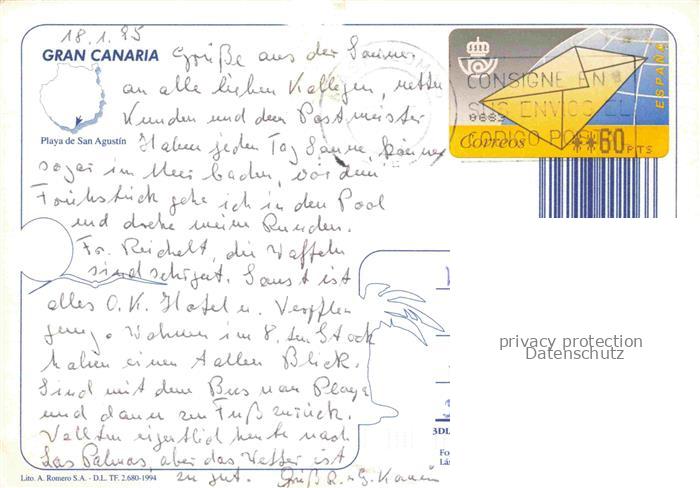 18.1.95
GRAN CANARIA
Playa de San Agustín
Grüße aus der Sonne
an alle lieben Kollegen, netten
Kunden und dem Postmeister
Haben jeden Tag Sonne, können
sogar im Meer baden, vor dem
Frühstück gehe ich in den Pool
und drehe meine Runden.
Fr. Reichelt, die Waffeln
sind sehr gut. Sonst ist
alles O.K. Hotel u. Verpflegung.
Wohnen im 8. ten Stock
haben einen tollen Blick.
Sind mit dem Bus nach Playa
und dann zu Fuß zurück.
Wollten eigentlich heute nach
Las Palmas, aber das Wetter ist
zu gut. Gruß R. u. G.
CONSIGNE EN
SUS ENVIOS EL
CODIGO POSTAL
ESPAÑA
Correos
**60 PTS
privacy protection
Datenschutz
3DL
Fo
Lás
Lito. A. Romero S.A. - D.L. TF. 2.680-1994